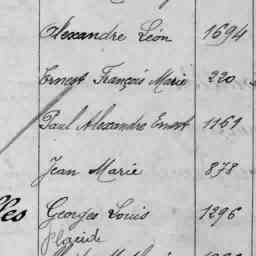 Alexandre Léon 1694
Ernest François Marie 220
Paul Alexandre Ernest 1161
Jean Marie 878
Georges Louis 1296
Placide